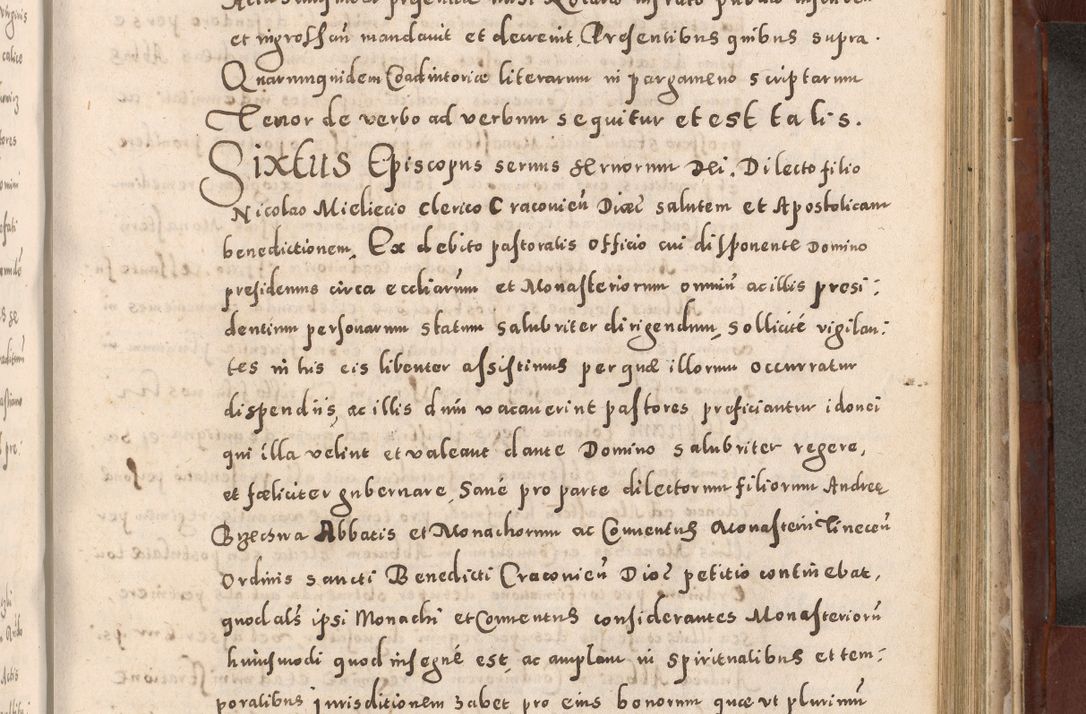 et ingrossari mandavit et decrevit, Presentibus quibus supra.
Quarumquidem Coadiutorie literarum in pargameno scriptarum
Tenor de verbo ad verbum sequitur et est talis.
Sixtus Episcopus servus servorum Dei. Dilecto filio
Nicolao Mieliecio clerico Cracovień Dioec salutem et Apostolicam
benedictionem, Ex debito pastoralis officio cui disponente Domino
presidemus circa eccliarum et Monasteriorum omniū ac illis presi:
dentium personarum statum salubriter dirigendum, sollicité vigilan:
tes in his eis libenter assistimus per quæ illorum occurratur
dispendiis, ac illis dum vacaverint pastores preficiantur idonei
qui illa velint et valeant dante Domino salubriter regere,
et fœliciter gubernare, Sané pro parte dilectorum filiorum Andreę
Brzechwa Abbatis et Monachorum ac Conventus Monasterii Tinecen̄
Ordinis sancti Benedicti Cracovień Dioc petitio continebat,
quod als ipsi Monachi et Conventus considerantes Monasteriorū
huiusmodi quod insigné est, ac amplam in spiritualibus et tem:
poralibus jurisdictionem habet pro eius bonorum quæ ut plurimū